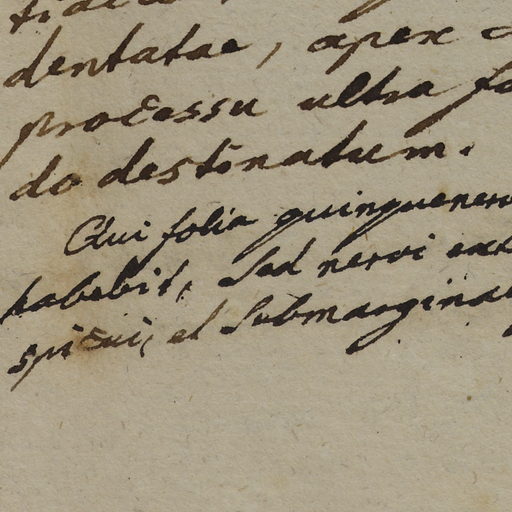 dentatae, apex
processu ultra
do destinatum.
Qui folia quinquenerv
habebit, Sed nervi ext
spicui, et Submargina